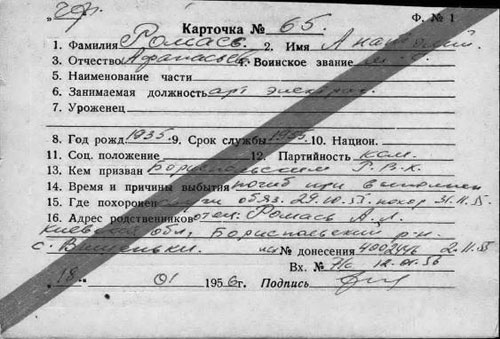 Ф. № 1
Карточка № 65.
1. Фамилия Ромась 2. Имя Анатолий
3. Отчество Афанасьев. 4. Воинское звание
5. Наименование части
6. Занимаемая должность арт электрик
7. Уроженец
8. Год рожд. 1935. 9. Срок службы 1955. 10. Национ.
11. Соц. положение 12. Партийность ком.
13. Кем призван Бориспольским Р.В.К.
14. Время и причины выбытия погиб при выполнен
15. Где похоронен обяз. 29.10.55. похор 31.10.55.
16. Адрес родственников отец: Ромась А.
Киевская обл, Бориспольский р-н
с. Вишеньки. № донесения 2.11.55
Вх. № 12.01.56
"18" 01 1956 г. Подпись